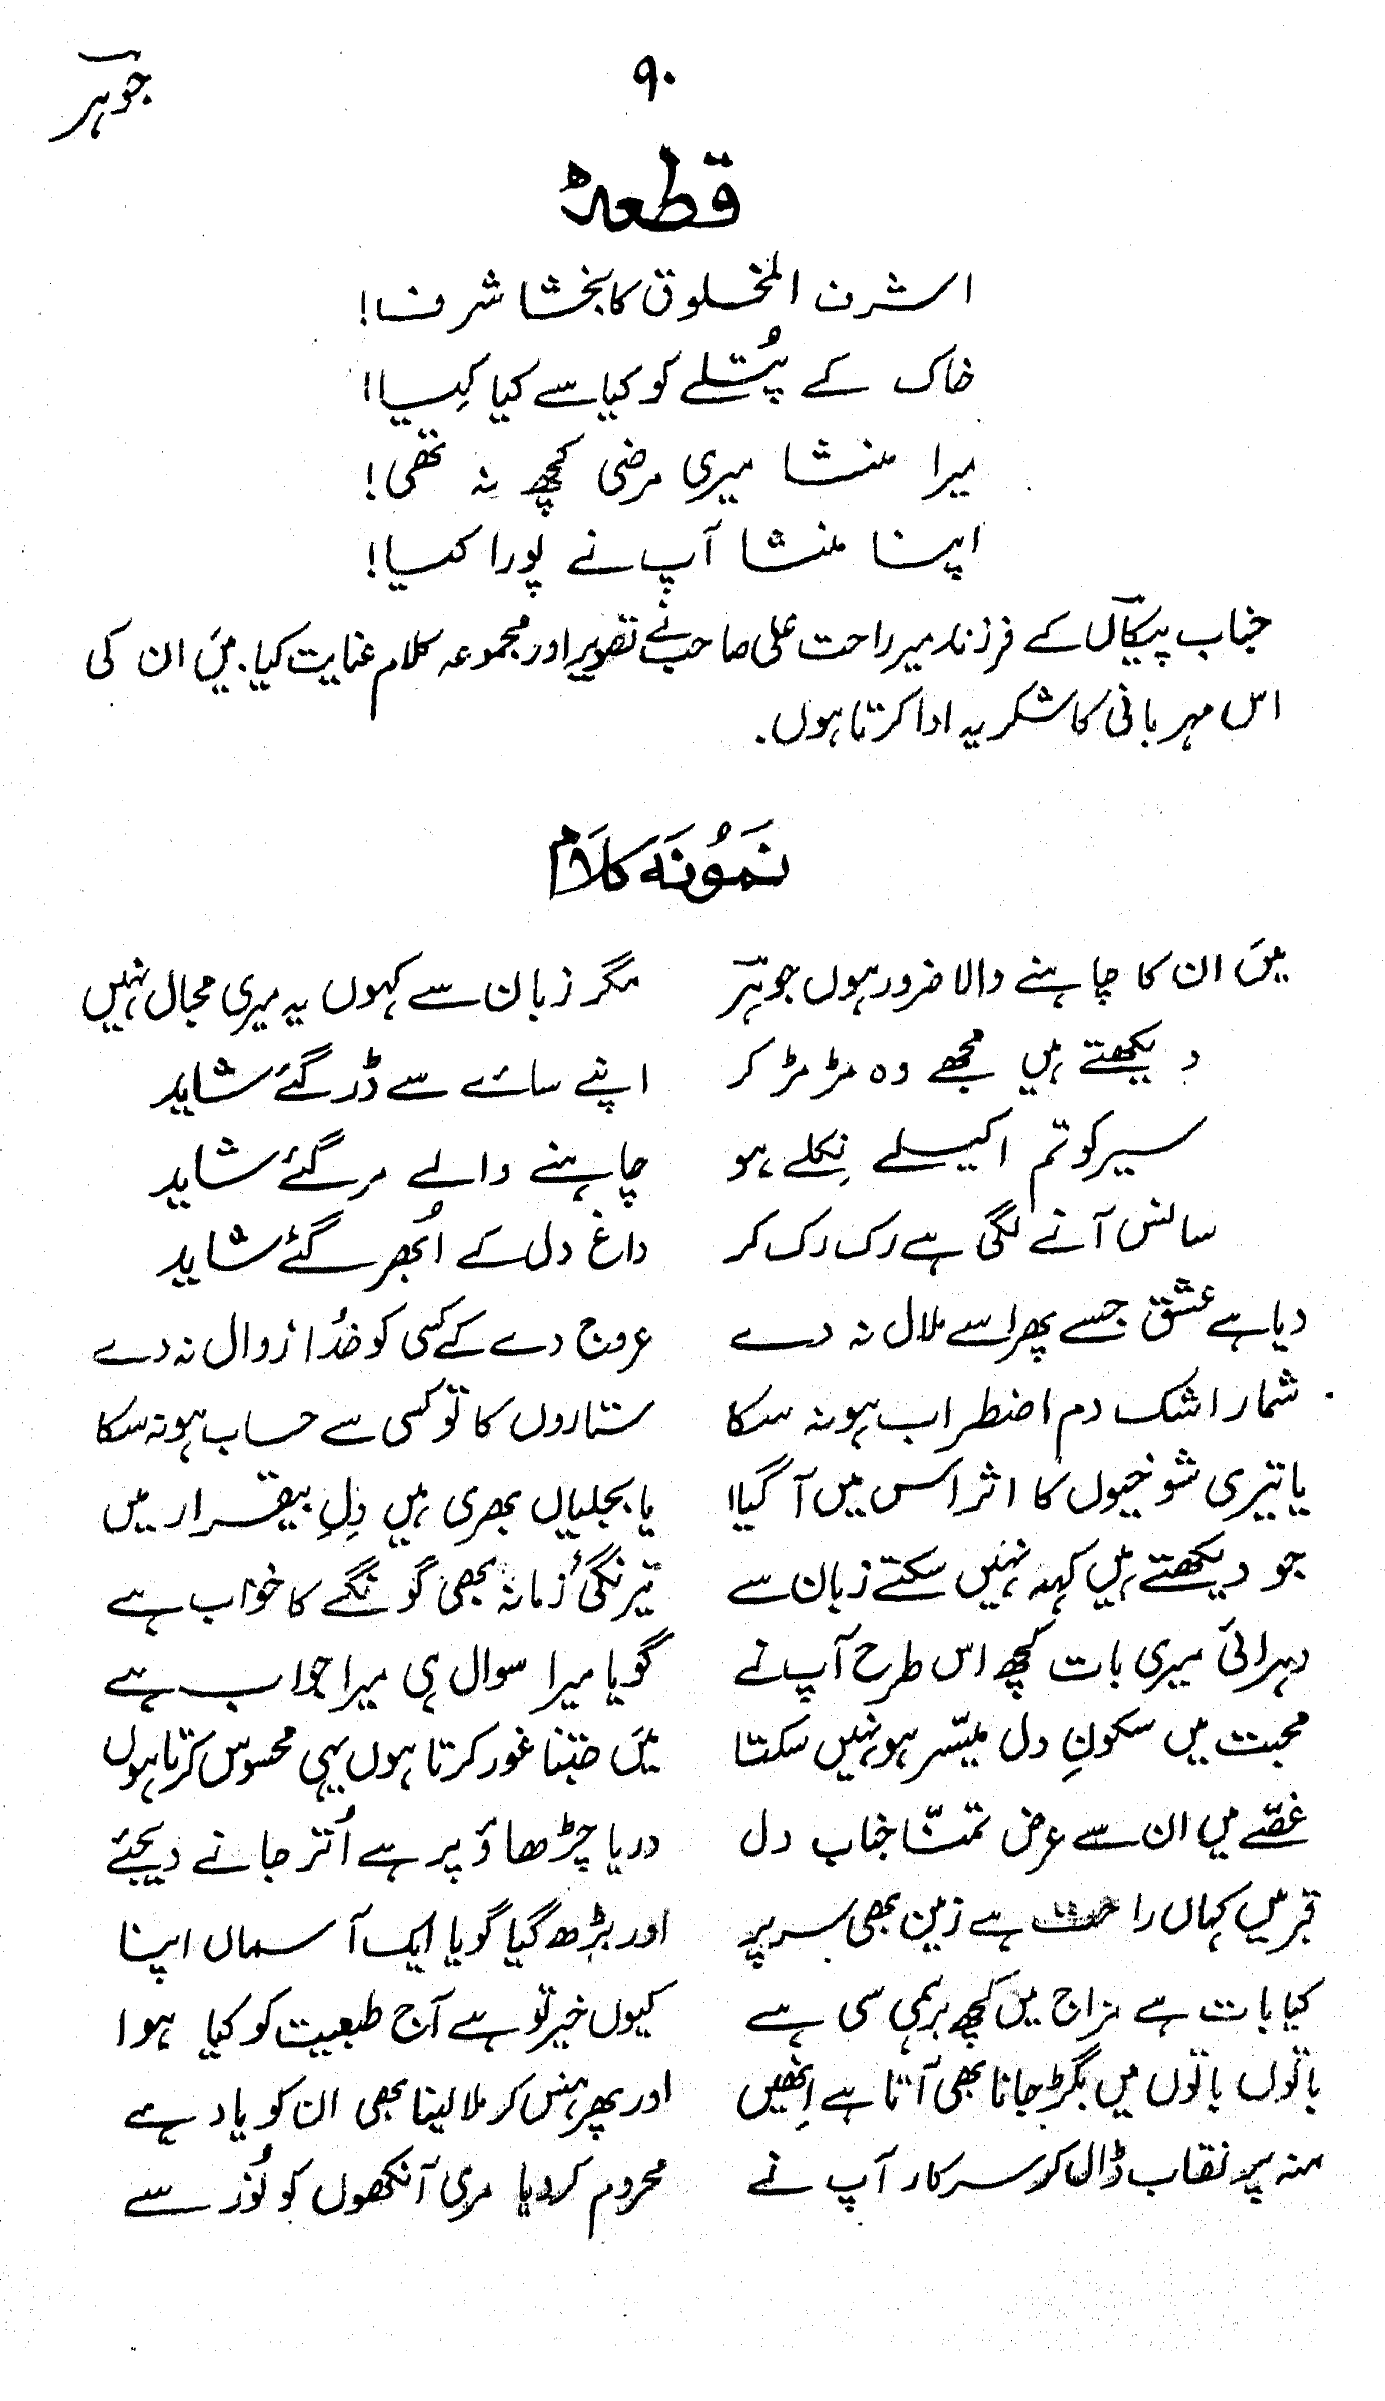 جوہر
۹۰
قطعہ
اشرف المخلوق کا بخشا شرف!
خاک کے پُتلے کو کیا سے کیا کِیا!
میرا منشا میری مرضی کچھ نہ تھی!
اپنا منشا آپ نے پورا کیا!
جناب پیکاں کے فرزند میر راحت علی صاحب نے تصویر اور مجموعہ کلام عنایت کیا۔ میں ان کی
اس مہربانی کا شکریہ ادا کرتا ہوں۔
نَمُونَہ کلَام
میں ان کا چاہنے والا ضرور ہوں جوہر مگر زبان سے کہوں یہ میری مجال نہیں
دیکھتے ہیں مجھے وہ مڑ مڑ کر اپنے سائے سے ڈر گئے شاید
سیر کو تم اکیلے نِکلے ہو چاہنے والے مر گئے شاید
سانس آنے لگی ہے رک رک کر داغ دل کے اُبھر گئے شاید
دیا ہے عشق جسے پھر اسے ملال نہ دے عروج دے کے کسی کو خدُا زوال نہ دے
شمار اشک دم اضطراب ہو نہ سکا ستاروں کا تو کسی سے حساب ہو نہ سکا
یا تیری شوخیوں کا اثر اس میں آ گیا! یا بجلیاں بھری ہیں دِلِ بیقرار میں
جو دیکھتے ہیں کہہ نہیں سکتے زبان سے نیرنگیٔ زمانہ بھی گونگے کا خواب ہے
دہرائی میری بات کچھ اس طرح آپ نے گویا میرا سوال ہی میرا جواب ہے
محبت میں سکونِ دل میسّر ہو نہیں سکتا میں جتنا غور کرتا ہوں یہی محسوس کرتا ہوں
غصّے میں ان سے عرض تمنّا جناب دل دریا چڑھاؤ پر ہے اُتر جانے دیجئے
قبر میں کہاں راحت ہے زمین بھی سر پر اور بڑھ گیا گویا ایک آسماں اپنا
کیا بات ہے مزاج میں کچھ برہمی سی ہے کیوں خیر تو ہے آج طبعیت کو کیا ہوا
باتوں باتوں میں بگڑ جانا بھی آتا ہے اِنھیں اور پھر ہنس کر ملا لینا بھی ان کو یاد ہے
منہ پر نقاب ڈال کر سرکار آپ نے محروم کر دیا مری آنکھوں کو نُور سے